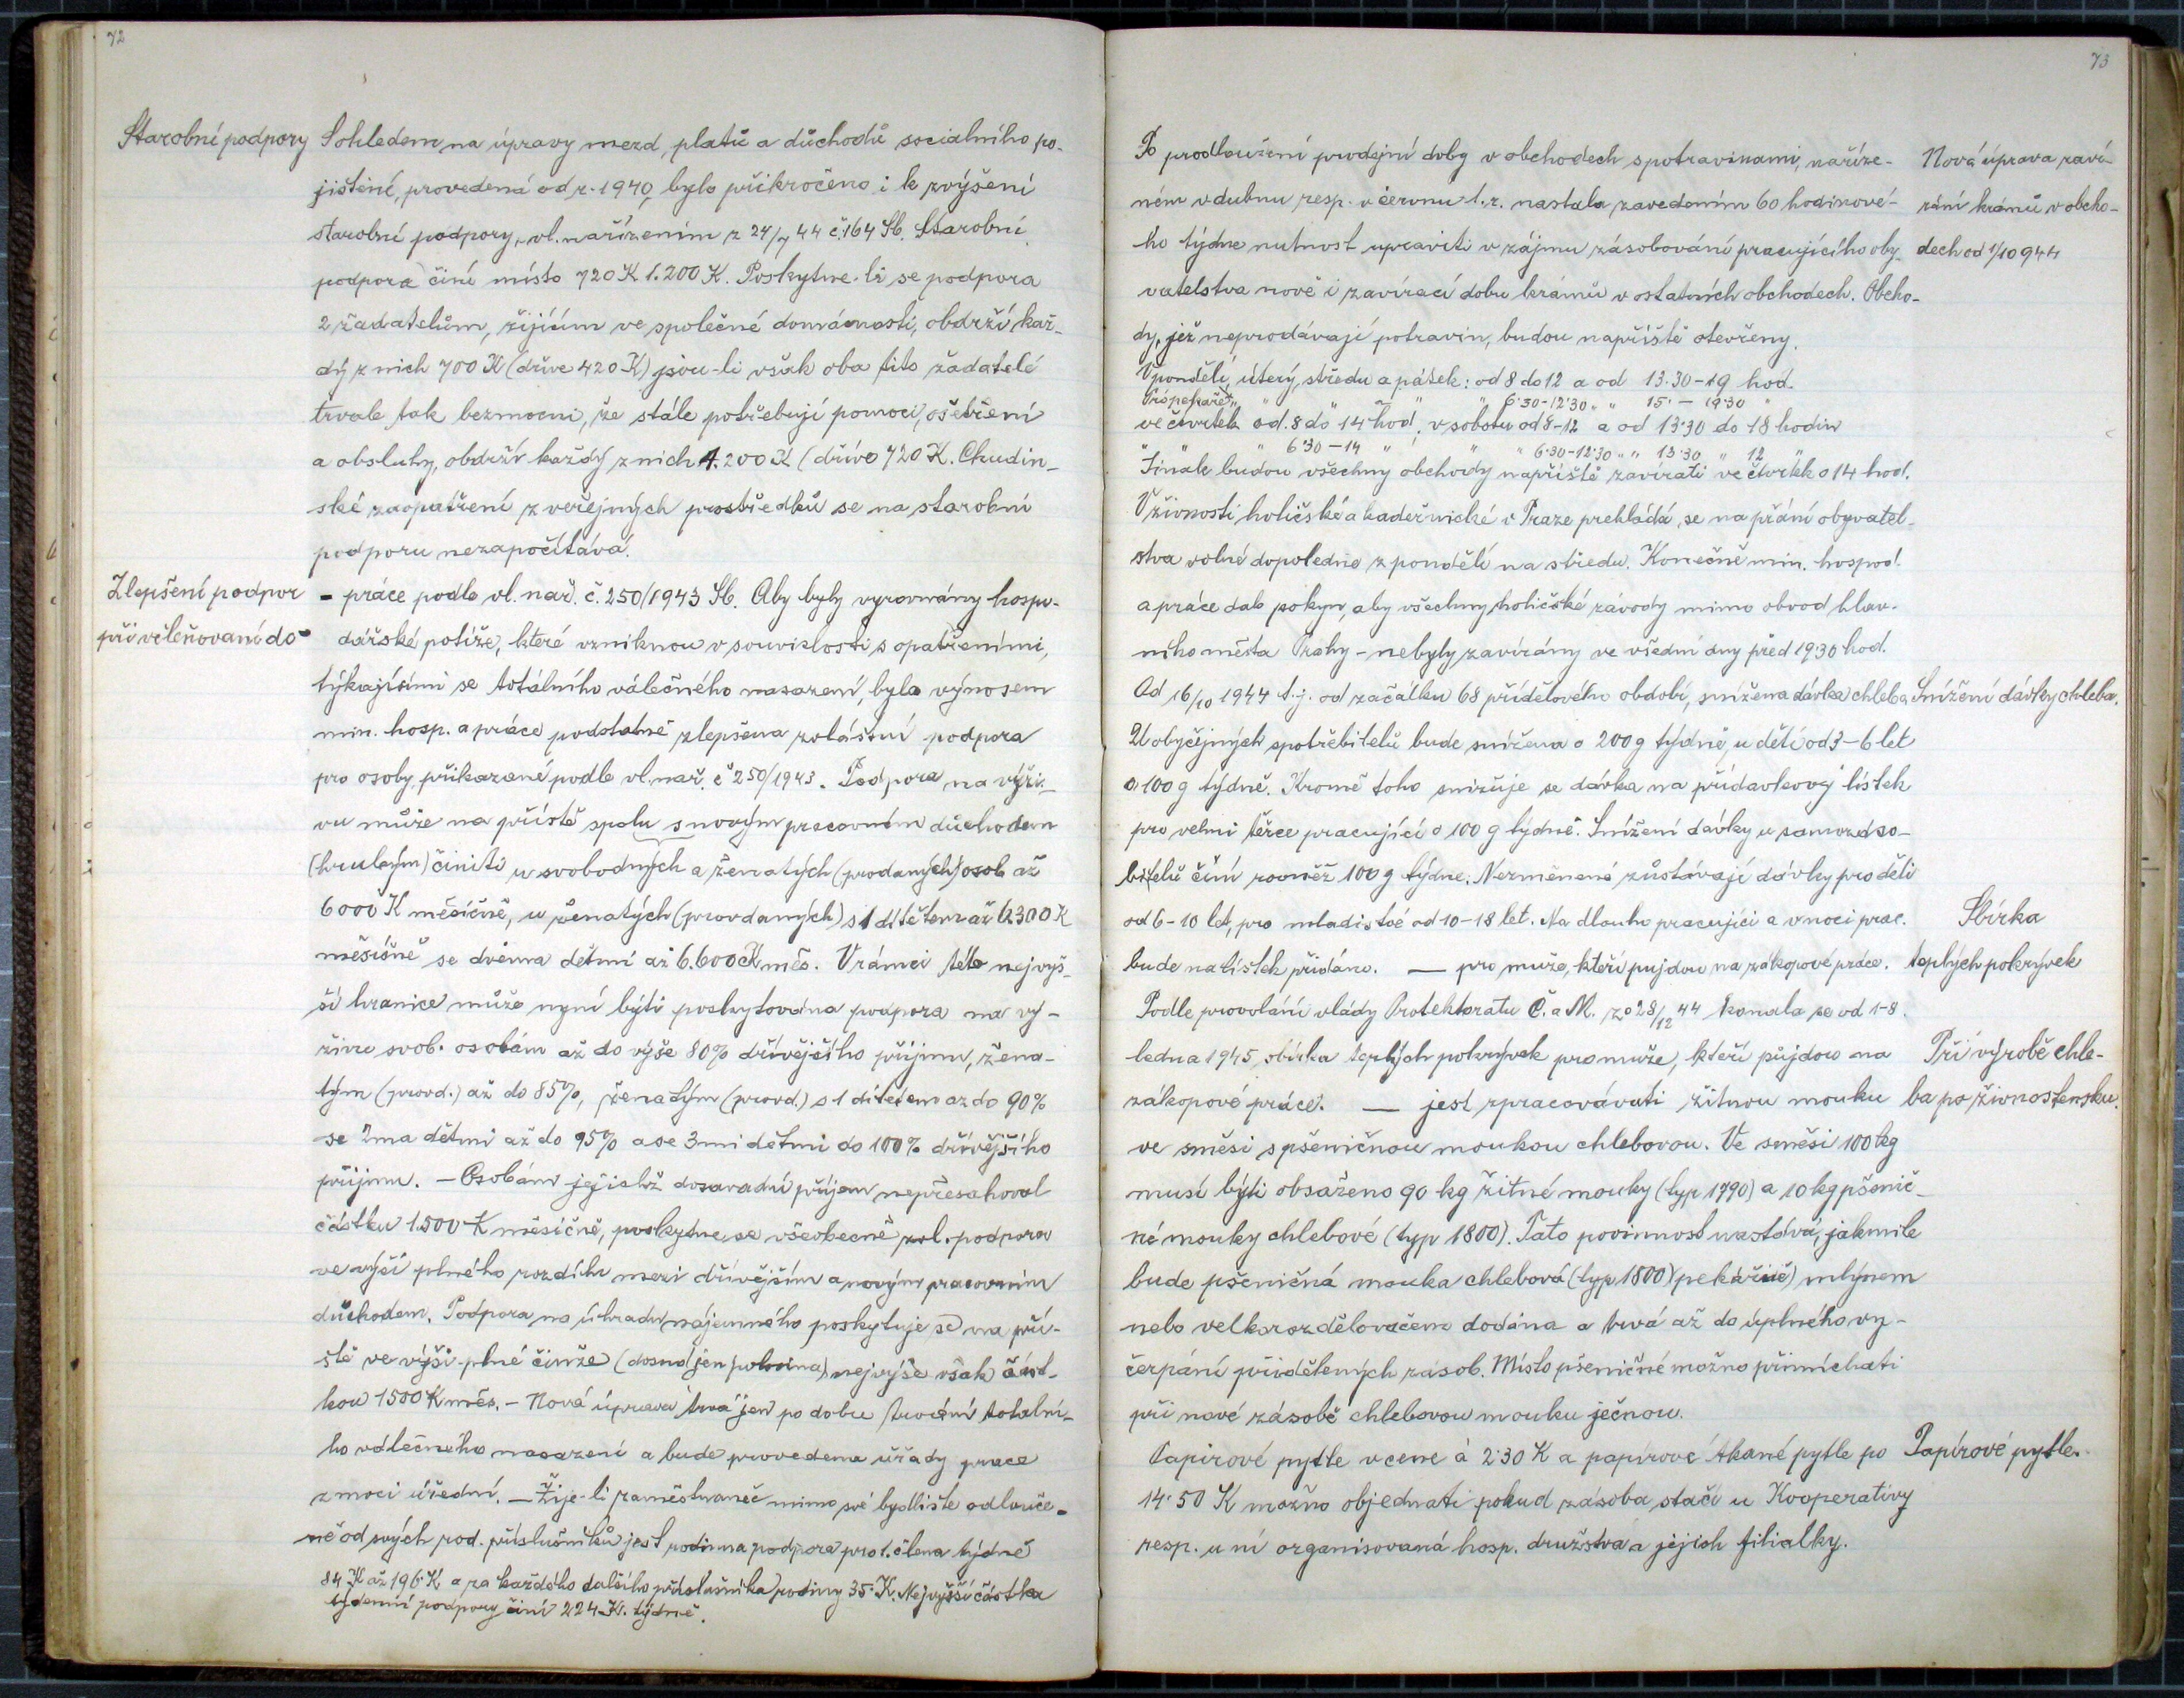 72
Starobní podpory
S ohledem na úpravy mezd, platů a důchodů socialního po-
jištění, provedená od r. 1940, bylo přikročeno i k zvýšení
starobní podpory, vl. nařízením z 24/7 44 č. 164 Sb. Starobní
podpora činí místo 720 K 1.200 K. Poskytne-li se podpora
2 žadatelům, žijícím ve společné domácnosti, obdrží kaž-
dý z nich 700 K (dříve 420 K) jsou-li však oba tito žadatelé
trvale tak bezmocni, že stále potřebují pomoci, ošetření
a obsluhy, obdrží každý z nich 1.200 K (dříve 720 K. Chudin-
ské zaopatření z veřejných prostředků se na starobní
podporu nezapočítává.
Zlepšení podpor
při včleňovaní do-
- práce podle vl. nař. č. 250/1943 Sb. Aby byly vyrovnány hospo-
dářské potíže, které vzniknou v souvislosti s opatřeními,
týkajícími se totálního válečného nasazení, byla výnosem
min. hosp. a práce podstatně zlepšena zvláštní podpora
pro osoby, přikazané podle vl. nař. č 250/1943. Podpora na výži-
vu může na příště spolu s novým pracovním důchodem
(hrubým) činiti u svobodných a ženatých (prodaných) osob až
6000 K měsíčně, u ženatých (provdaných) s 1 dítětem až 6300 K
měsíčně se dvěma dětmi až 6.600 K měs. V rámci této nejvyš-
ší hranice může nyní býti poskytována podpora na vý-
živu svob. osobám až do výše 80% dřívějšího příjmu, žena-
tým (provd.) až do 85%, ženatým (provd.) s 1 dítětem až do 90%
se 2ma dětmi až do 95% a se 3mi dětmi do 100% dřívějšího
příjmu. - Osobám jejichž dosavadní příjem nepřesahoval
částku 1.500 K měsíčně, poskytne se všeobecně zvl. podpora
ve výši plného rozdílu mezi dřívějším a novým pracovním
důchodem. Podpora na úhradu nájemného poskytuje se na pří-
ště ve výši plné činže (dosud jen polovina) nejvýše však část-
kou 1500 K měs. - Nová úprava trvá jen po dobu trvání totalní-
ho válečného nasazení a bude provedena úřady prace
z moci úřední. - Žije-li zaměstnanec mimo své bydliště odlouče-
ně od svých rod. příslušníků jest rodinna podpora pro 1. člena týdně
84 K až 196 K a za každého dalšího příslušníka rodiny 35 K. Nejvyšší částka
týdenní podpory činí 224 K. týdně.
73
Po prodloužení prodejní doby v obchodech s potravinami, naříze-
ném v dubnu resp. v červnu t. r. nastala zavedením 60 hodinové-
ho týdne nutnost upraviti v zájmu zásobování pracujícího oby-
vatelstva nově i zavírací dobu krámů v ostatních obchodech. Obcho-
dy, jež neprodávají potravin, budou napříště otevřeny.
V pondělí, úterý, středu a pátek: od 8 do 12 a od 13·30-19 hod.
Pro pekaře " " " " " 6·30-12·30 " " 15· - 19·30 "
ve čtvrtek od 8 do 14 hod, v sobotu od 8-12 a od 13·30 do 18 hodin
" " " 6·30-14 " " " 6·30-12·30 " " 13·30 " 12 "
Jinak budou všechny obchody napříště zavírati ve čtvrtek o 14 hod.
V živnosti holičské a kadeřnické v Praze prekládá se na přání obyvatel-
stva volné dopoledne z pondělí na středu. Konečně min. hospod.
a práce dalo pokyn, aby všechny holičské závody mimo obvod hlav-
ního města Prahy - nebyly zavírány ve všední dny před 19·30 hod.
Nová úprava zaví-
rání krámů v obcho-
dech od 1/10 944
Od 16/10 1944 t. j. od začátku 68 přídělového období, snížena dávka chleba
Snížení dávky chleba.
U obyčejných spotřebitelů bude snížena o 200 g týdně, u dětí od 3-6 let
o 100 g týdně. Kromě toho snižuje se dávka na přídavkový lístek
pro velmi těžce pracující o 100 g týdně. Snížení dávky u samozáso-
bitelů činí rovněž 100 g týdne. Nezměněné zůstávají dávky pro děti
od 6-10 let, pro mladistvé od 10-18 let. Na dlouho pracující a v noci prac.
bude na lístek přidáno. — pro muže, kteří pujdou na zákopové práce.
Sbírka
teplých pokrývek
Podle provolání vlády Protektoratu Č. a M. ze 28/12 44 konala se od 1-8.
ledna 1945, sbírka teplých pokrývek pro muže, kteří půjdou na
zákopové práce. — jest zpracovávati žitnou mouku
Při výrobě chle-
ba po živnostensku.
ve směsi s pšeničnou moukou chlebovou. Ve směsi 100 kg
musí býti obsaženo 90 kg žitné mouky (typ 1790) a 10 kg pšenič-
né mouky chlebové (typ 1800). Tato povinnost nastává, jakmile
bude pšeničná mouka chlebová (typ 1800) (pekařině) mlýnem
nebo velkorozdělovačem dodána a trvá až do úplného vy-
čerpání přidělených zásob. Místo pšeničné možno přimíchati
při nové zásobě chlebovou mouku ječnou.
Papirové pytle v cene á 2·30 K a papírové tkané pytle po
Papírové pytle.
14·50 K možno objednati pokud zásoba stačí u Kooperativy
resp. u ní organisovaná hosp. družstva a jejich filialky.